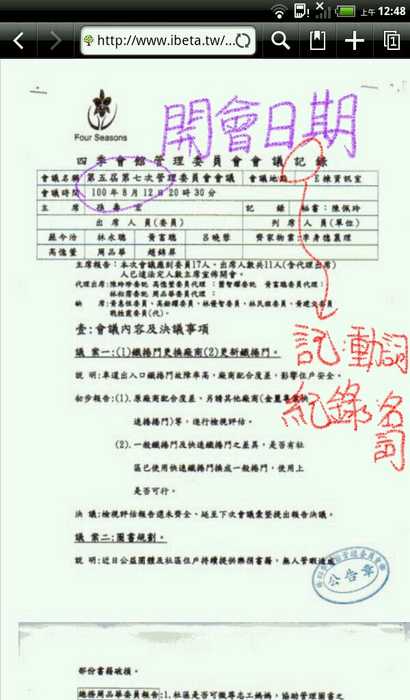 上午 12:48
http://www.ibeta.tw/...
Four Seasons
開會日期
四季會館管理委員會會議記錄
會議名稱 第五屆第七次管理委員會會議 會議地點 E棟賞訊室
會議時間 100年8月12日20時30分
主席 記錄 秘書:陳佩玲
出席人員(委員) 列席人員(單位)
林永聰 黃富聰 呂曉蓉
周品華 趙錦昇
主席報告:本次會議應到委員17人,出席人數共11人(含代理出席)
人已達法定人數主席宣佈開會。
壹:會議內容及決議事項
記:動詞
議 案一:(1)鐵捲門更換廠商(2)更新鐵捲門。
紀錄:名詞
說 明:車道出入口鐵捲門故障率高,廠商配合度差,影響住戶安全。
初步報告:(1).原廠商配合度差,另請其他廠商
速捲門)等,進行檢視評估。
(2).一般鐵捲門及快速鐵捲門之差異,是否有社
區已使用快速鐵捲門換成一般捲門,使用上
是否可行。
決 議:檢視評估報告還未齊全、延至下次會議彙整提出報告決議。
議 案二:圖書規劃。
說 明:近日公益團體及社區住戶持續提供樂捐書籍,無人管理造成
公告章
部份書籍破損。
總務周品華委員報告:1.社區是否可徵尋志工媽媽,協助管理圖書之